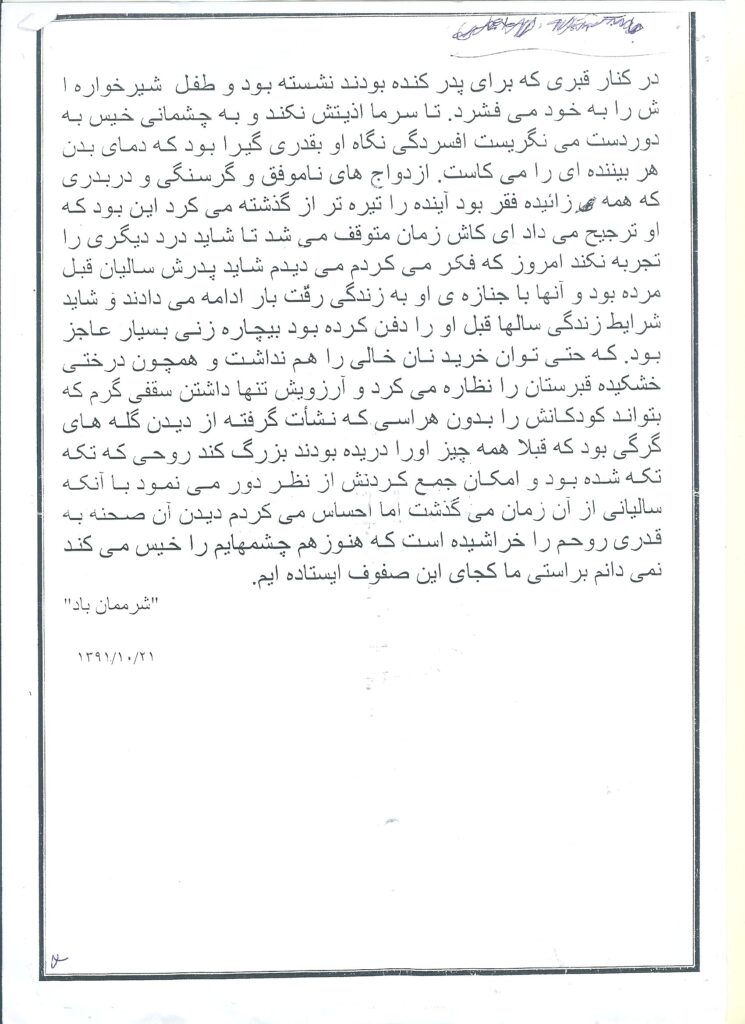 در کنار قبری که برای پدر کنده بودند نشسته بود و طفل شیرخواره ا
ش را به خود می فشرد. تا سرما اذیتش نکند و به چشمانی خیس به
دوردست می نگریست افسردگی نگاه او بقدری گیرا بود که دمای بدن
هر بیننده ای را می کاست. ازدواج های ناموفق و گرسنگی و دربدری
که همه زائیده فقر بود آینده را تیره تر از گذشته می کرد این بود که
او ترجیح می داد ای کاش زمان متوقف می شد تا شاید درد دیگری را
تجربه نکند امروز که فکر می کردم می دیدم شاید پدرش سالیان قبل
مرده بود و آنها با جنازه ی او به زندگی رقّت بار ادامه می دادند و شاید
شرایط زندگی سالها قبل او را دفن کرده بود بیچاره زنی بسیار عاجز
بود. که حتی توان خرید نان خالی را هم نداشت و همچون درختی
خشکیده قبرستان را نظاره می کرد و آرزویش تنها داشتن سقفی گرم که
بتواند کودکانش را بدون هراسی که نشأت گرفته از دیدن گله های
گرگی بود که قبلا همه چیز اورا دریده بودند بزرگ کند روحی که تکه
تکه شده بود و امکان جمع کردنش از نظر دور می نمود با آنکه
سالیانی از آن زمان می گذشت اما احساس می کردم دیدن آن صحنه به
قدری روحم را خراشیده است که هنوزهم چشمهایم را خیس می کند
نمی دانم براستی ما کجای این صفوف ایستاده ایم.
"شرممان باد"
۱۳۹۱/۱۰/۲۱